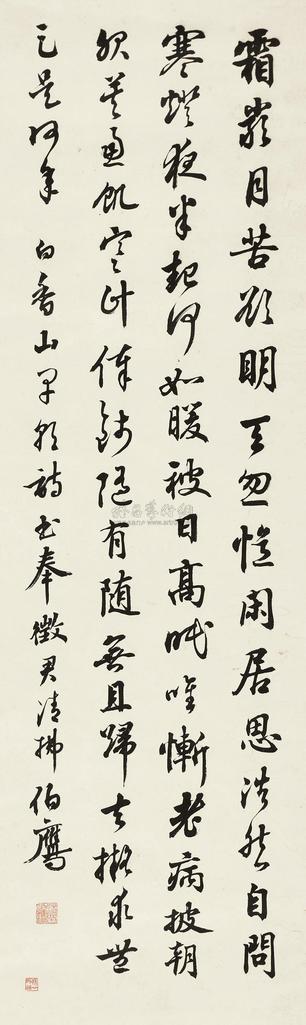 霜嚴月苦欲明天忽憶閑居思浩然自問
寒燈夜半起何如暖被日高眠唯慚老病披朝
服莫慮飢寒計俸錢隨有随無且歸去擬求豐
足是何年 白香山早朝詩書奉徵君清拂 伯鷹